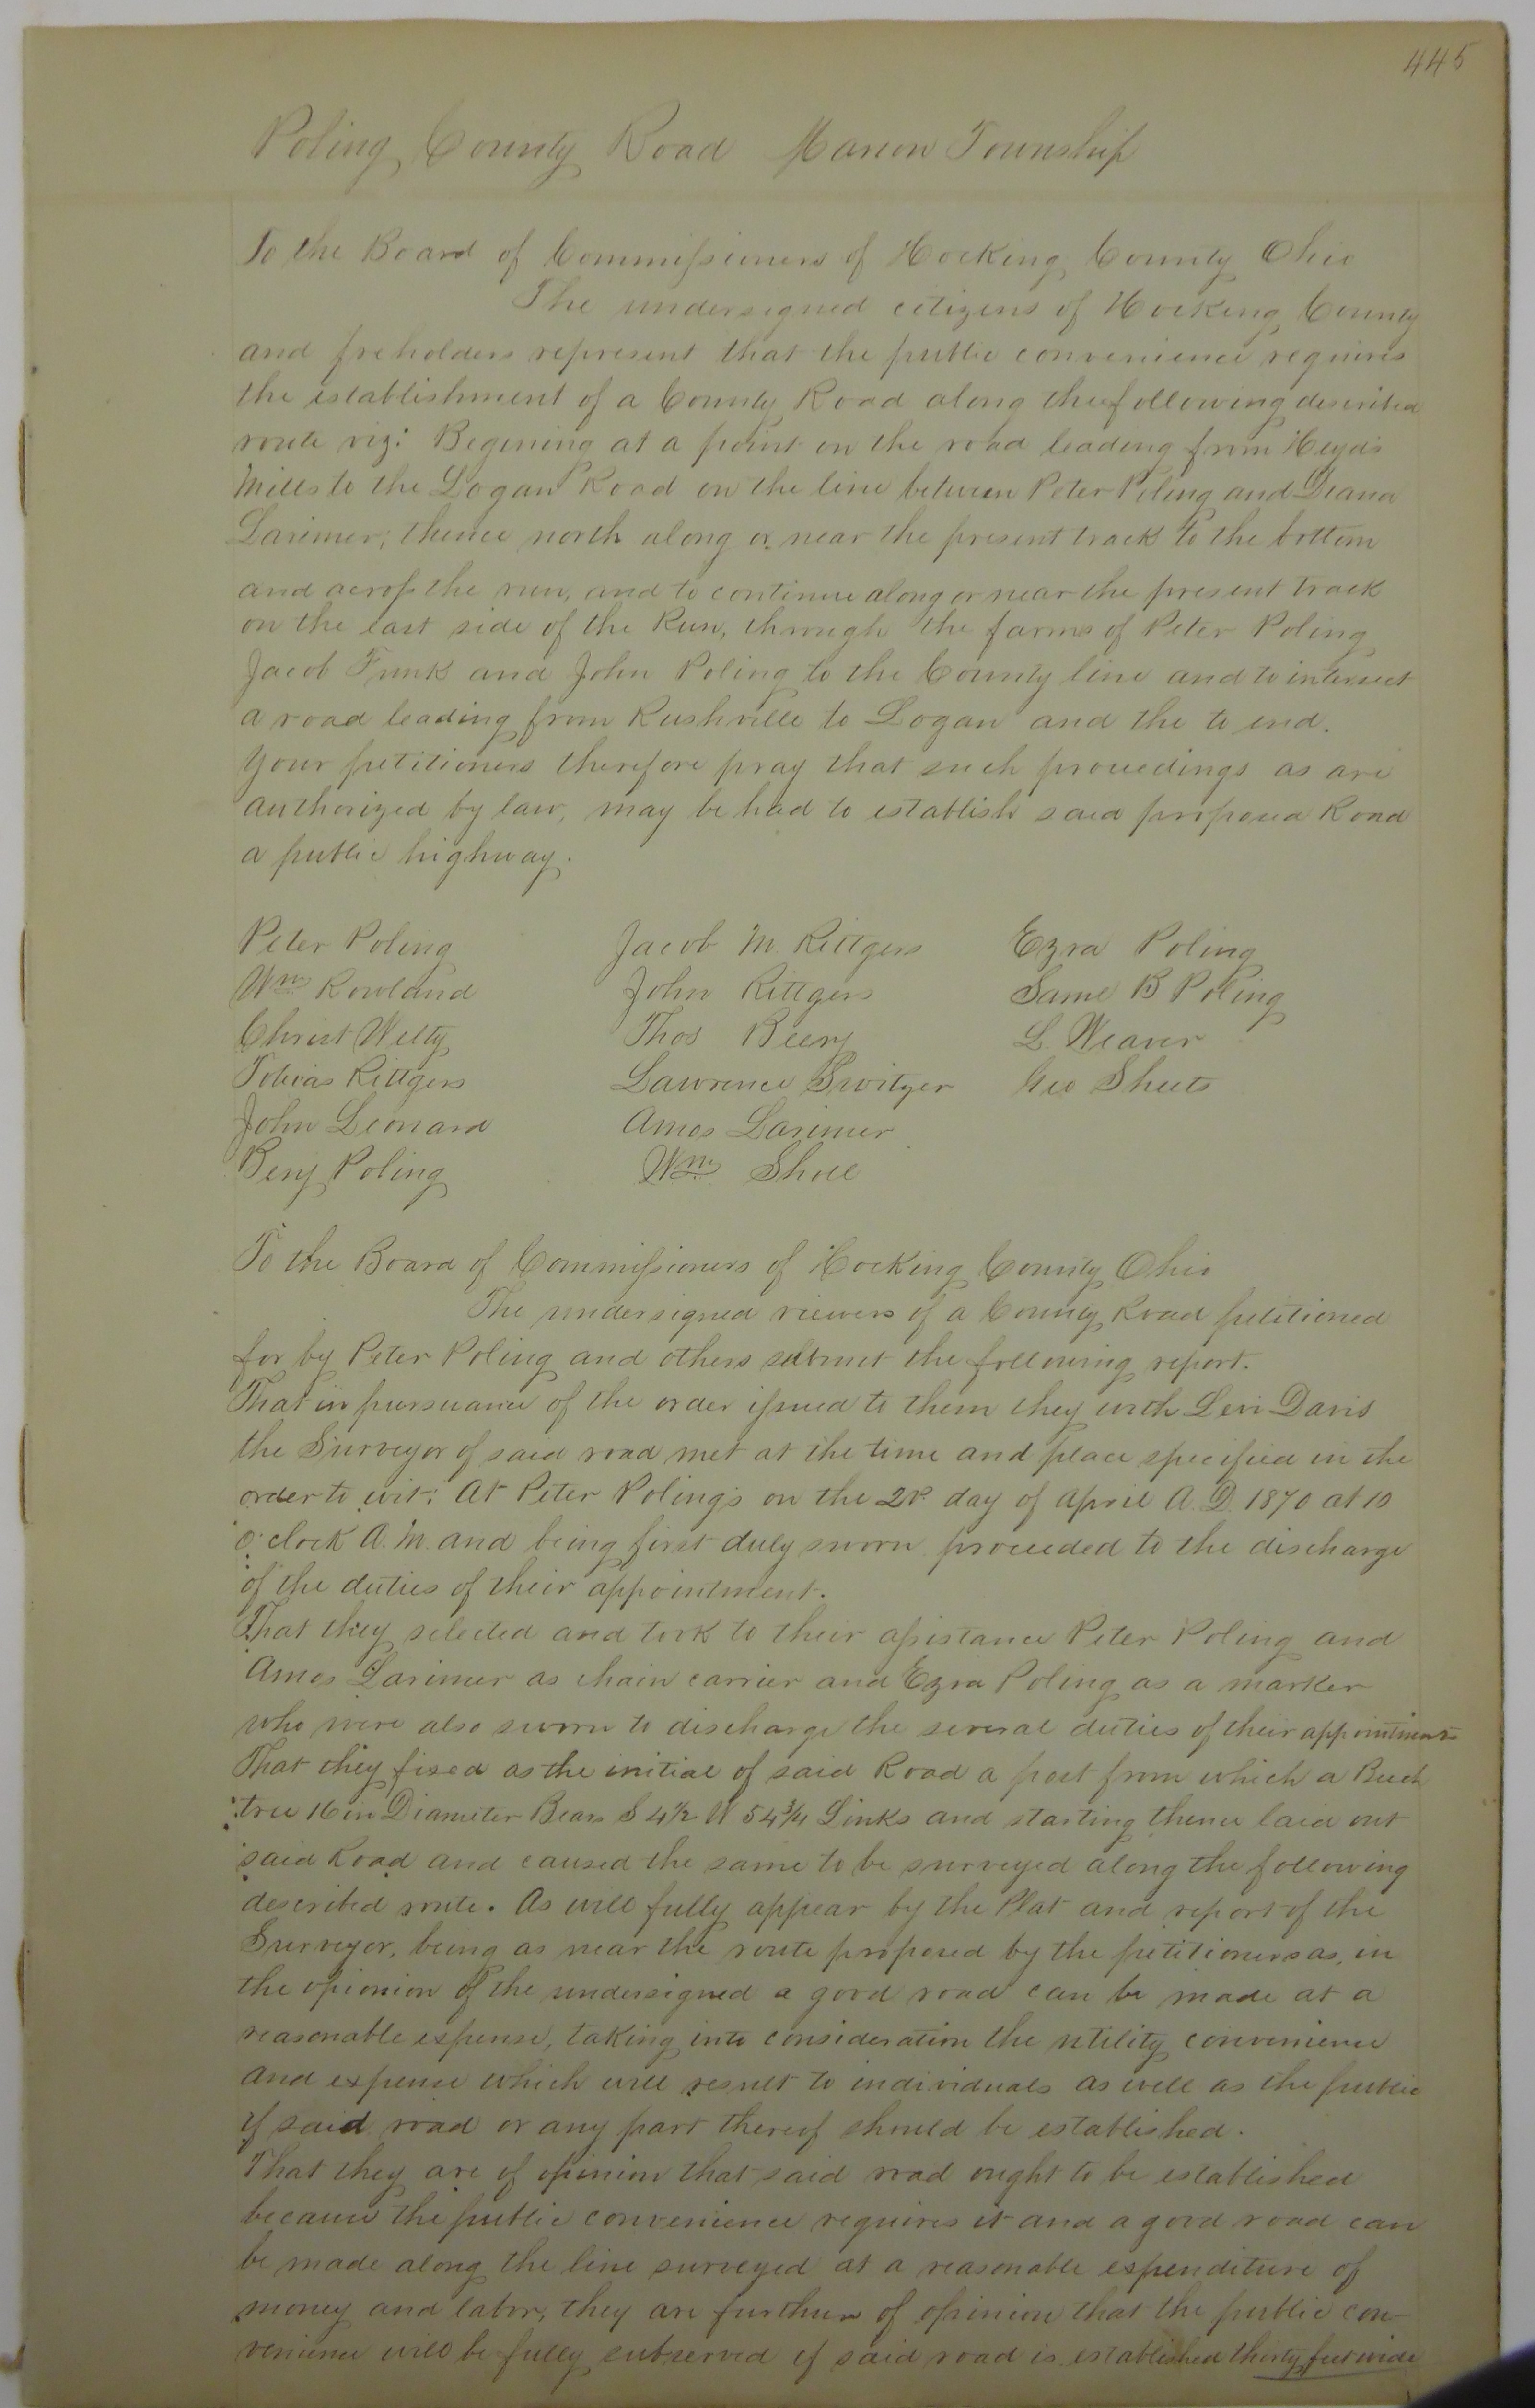 445
Poling County Road Marion Township
To the Board of Commissioners of Hocking County Ohio
The undersigned citizens of Hocking County
and freholders represent that the public convenience requires
the establishment of a County Road along the following described
route viz: Begining at a point on the road leading from
Mills to the Logan Road on the line between Peter Poling and Diana
Larimer; thence north along or near the present track to the bottom
and across the run, and to continue along or near the present track
on the east side of the Run, through the farms of Peter Poling
Jacob Funk and John Poling to the County line and to intersect
a road leading from Rushville to Logan and the to end.
Your petitioners therefore pray that such proceedings as are
authorized by law, may be had to establish said proposed Road
a public highway.
Peter Poling Jacob M. Rittgers Ezra Poling
Wm Rowland John Rittgers Saml B Poling
Christ Welty Thos Beery L. Weaver
Tobias Rittgers Lawrence Switzer Geo Sheets
John Leonard Amos Larimer
Benj Poling Wm Shoe
To the Board of Commissioners of Hocking County Ohio
The undersigned viewers of a County Road petitioned
for by Peter Poling and others submit the following report.
That in pursuance of the order issued to them they with Levi Davis
the Surveyor of said road met at the time and place specified in the
order to wit: At Peter Poling's on the day of April A.D. 1870 at 10
o'clock A.M. and being first duly sworn proceeded to the discharge
of the duties of their appointment.
That they selected and took to their assistance Peter Poling and
Amos Larimer as chain carrier and Ezra Poling as a marker
who were also sworn to discharge the several duties of their appointments
That they fixed as the initial of said Road a post from which a Beech
tree 16 in Diameter Bears S 4½ W 54¾ Links and starting thence laid out
said Road and caused the same to be surveyed along the following
described route. As will fully appear by the Plat and report of the
Surveyor, being as near the route proposed by the petitioners as, in
the opionion of the undersigned a good road can be made at a
reasonable expense, taking into consideration the utility convenience
and expense which will result to individuals as well as the public
if said road or any part thereof should be established.
That they are of opinion that said road ought to be established
because the public convenience requires it and a good road can
be made along the line surveyed at a reasonable expenditure of
money and labor, they are further of opinion that the public con-
venience will be fully subserved if said road is established thirty feet wide